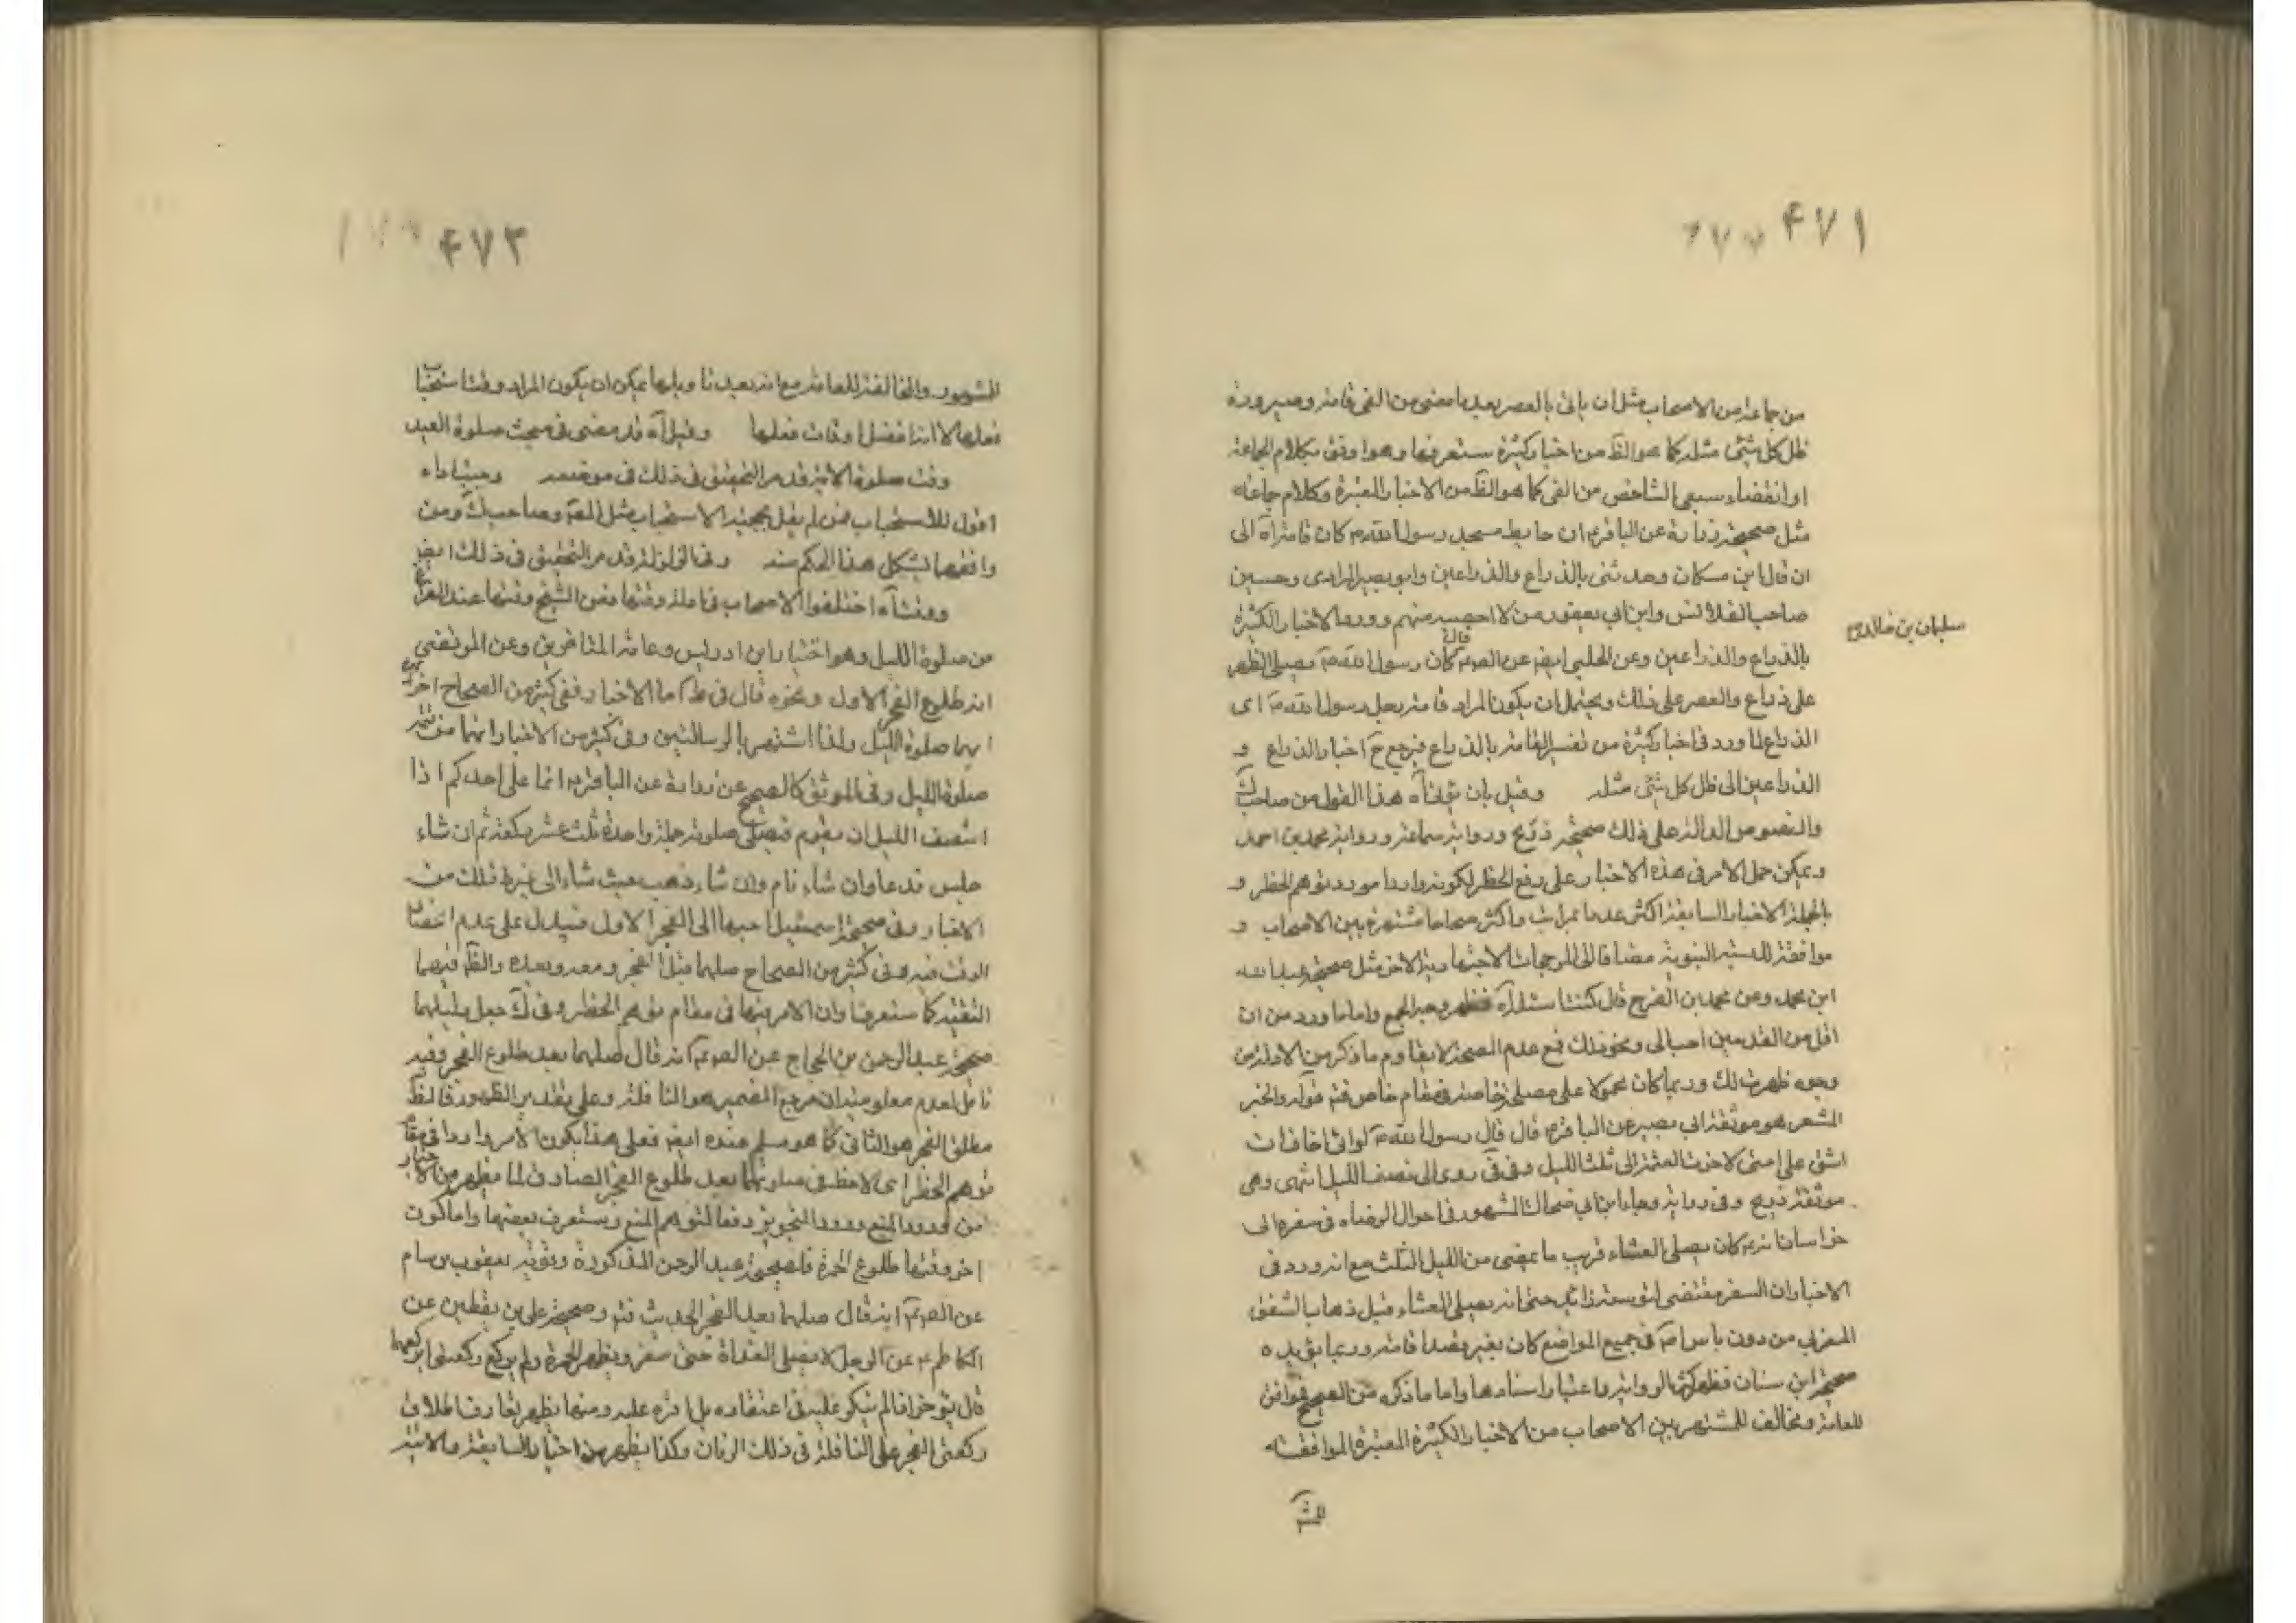 ۴۷۱
من جماعة من الاصحاب مثل ان ياتى بالعصر بعد ما مضى من الفى قامة وصيرورة
ظل كل شئ مثله كما هو الظ من اخبار كثيرة ستعرفها وهو اوفق بكلام الجماعة
او انقضاء سبعى الشاخص من الفى كما هو الظ من الاخبار المعتبرة وكلام جماعة
مثل صحيحة زرارة عن الباقر ان حايط مسجد رسول الله كان قامة آه الى
ان قال ابن مسكان وحدثنى بالذراع والذراعين وابو بصير المرادى وحسين
صاحب القلانس وابن ابى يعفور ومن لا احصيه منهم وورد الاخبار الكثيرة
سليمان بن خالد
بالذراع والذراعين وعن الحلبى ايض عن الص قال كان رسول الله يصلى الظهر
على ذراع والعصر على ذلك ويحتمل ان يكون المراد قامة رحل رسول الله اى
الذراع لما ورد فى اخبار كثيرة من تفسير القامة بالذراع فيرجع ح اخبار الذراع و
الذراعين الى ظل كل شئ مثله وقيل بان آه هذا القول من صاحب ك
والنصوص الدالة على ذلك صحيحة ذريح ورواية سماعة ورواية محمد بن احمد
ويمكن حمل الامر فى هذه الاخبار على رفع الحظر لكونه واردا مورد توهم الحظر و
بالجملة الاخبار السابقة اكثر عددا بمراتب واكثر صحاحا مشتهرة بين الاصحاب و
موافقة للسنة النبوية مضافا الى المرجحات الاجتهادية الاخر مثل صحيحة عبد الله
ابن محمد وعن محمد بن الفرج قال كتبت اسئله آه فظهر وجه الجمع واما ما ورد من ان
اقل من القدمين احب الى ونحو ذلك فمع عدم الصحة لا يقاوم ما ذكر من الادلة من
وجوه ظهرت لك وربما كان محمولا على مصلحة خاصة فى مقام خاص فتم قوله والخبر
المشعر هو موثقة ابى بصير عن الباقر قال قال رسول الله لولا انى اخاف ان
اشق على امتى لاخرت العتمة الى ثلث الليل وفى روى الى نصف الليل انتهى وهى
موثقة ذريح وفى رواية رجاء ابن ابى ضحاك المشهور فى احوال الرضا فى سفره الى
خراسان انه كان يصلى العشاء قريب ما يمضى من الليل الثلث مع انه ورد فى
الاخبار ان السفر مقتضى لتوسعة زائدة حتى انه يصلى العشاء قبل ذهاب الشفق
المغربى من دون باس مع فى جميع المواضع كان بغير بقصد اقامة وربما يؤيده
صحيحة ابن سنان فظهر كثرة الرواية واعتبار اسنادها واما ما ذكره من الصحيح فوافق
للعامة ومخالف للمشتهر بين الاصحاب من الاخبار الكثيرة المعتبرة الموافقة
۴۷۳
المشهور والمخالفة للعامة مع انه بعيد تاويلها يمكن ان يكون المراد وقت استحباب
فعلها لا انه افضل اوقات فعلها وقيل آه قد مضى فى مبحث صلوة العيد
وقت صلوة الاية قد مر التحقيق فى ذلك فى موضعه
اقول للاستحباب فمن لم يقل بحجية الاستصحاب مثل المص وصاحب ك ومن
وافقهما يشكل هذا الحكم منه وفى الزلزلة قد مر التحقيق فى ذلك ايض
ووقتا آه اختلفوا الاصحاب فى اول وقتها فعن الشيخ وقتها عند الفراغ
من صلوة الليل وهو اختيار ابن ادريس وعامة المتاخرين وعن المرتضى
انه طلوع الفجر الاول ونحوه قال فى ط اما الاخبار ففى كثير من الصحاح اخر
انهما صلوة الليل ولذا اشتهر بالدساستين وفى كثير من الاخبار انهما من
صلوة الليل وفى الموثق كالصحيح عن زرارة عن الباقر انما على احدكم اذا
انتصف الليل ان يقوم فيصلى صلوته جملة واحدة ثلث عشر ركعة ثم ان شاء
جلس فدعا وان شاء نام وان شاء ذهب حيث شاء الى غير ذلك من
الاخبار وفى صحيحة اسمعيل احبها الى الفجر الاول فيدل على عدم انحصار
الوقت فيه وفى كثير من الصحاح صلهما قبل الفجر ومعه وبعده والظ فيهما
التقية كما ستعرف وان الامر فيها فى مقام توهم الحظر وفى ك جعل دليلهما
صحيحة عبد الرحمن بن الحجاج عن الص انه قال صلهما بعد طلوع الفجر وفيه
تامل لعدم معلومية ان مرجع الضمير هو النافلة وعلى تقدير الظهور فالظ
مطلق الفجر هو الثانى كما هو مسلم عنده ايض فعلى هذا يكون الامر واردا فى مقام
توهم الحظر اى لاحظر فى صلوتهما بعد طلوع الفجر الصادق لما يظهر من الاخبار
من ورود المنع وورد التجويز دفعا لتوهم المنع وستعرف بعضها واما كون
اخر وقتها طلوع الحمرة فلصحيحة عبد الرحمن المذكورة وتقوية يعقوب بن سالم
عن الص انه قال صلهما بعد الفجر الحديث فتم وصحيحة على بن يقطين عن
الكاظم عن الرجل لا يصلى الغداة حتى يسفر ويظهر الحمرة ولم يركع ركعتى الفجر ايركعهما
قال يؤخرهما فلم ينكر عليه فى اعتقاده بل اقره عليه ومنها يظهر تعارف اطلاق
ركعتى الفجر على النافلة فى ذلك الزمان وكذا يظهر من اخبار السابقة والاتية